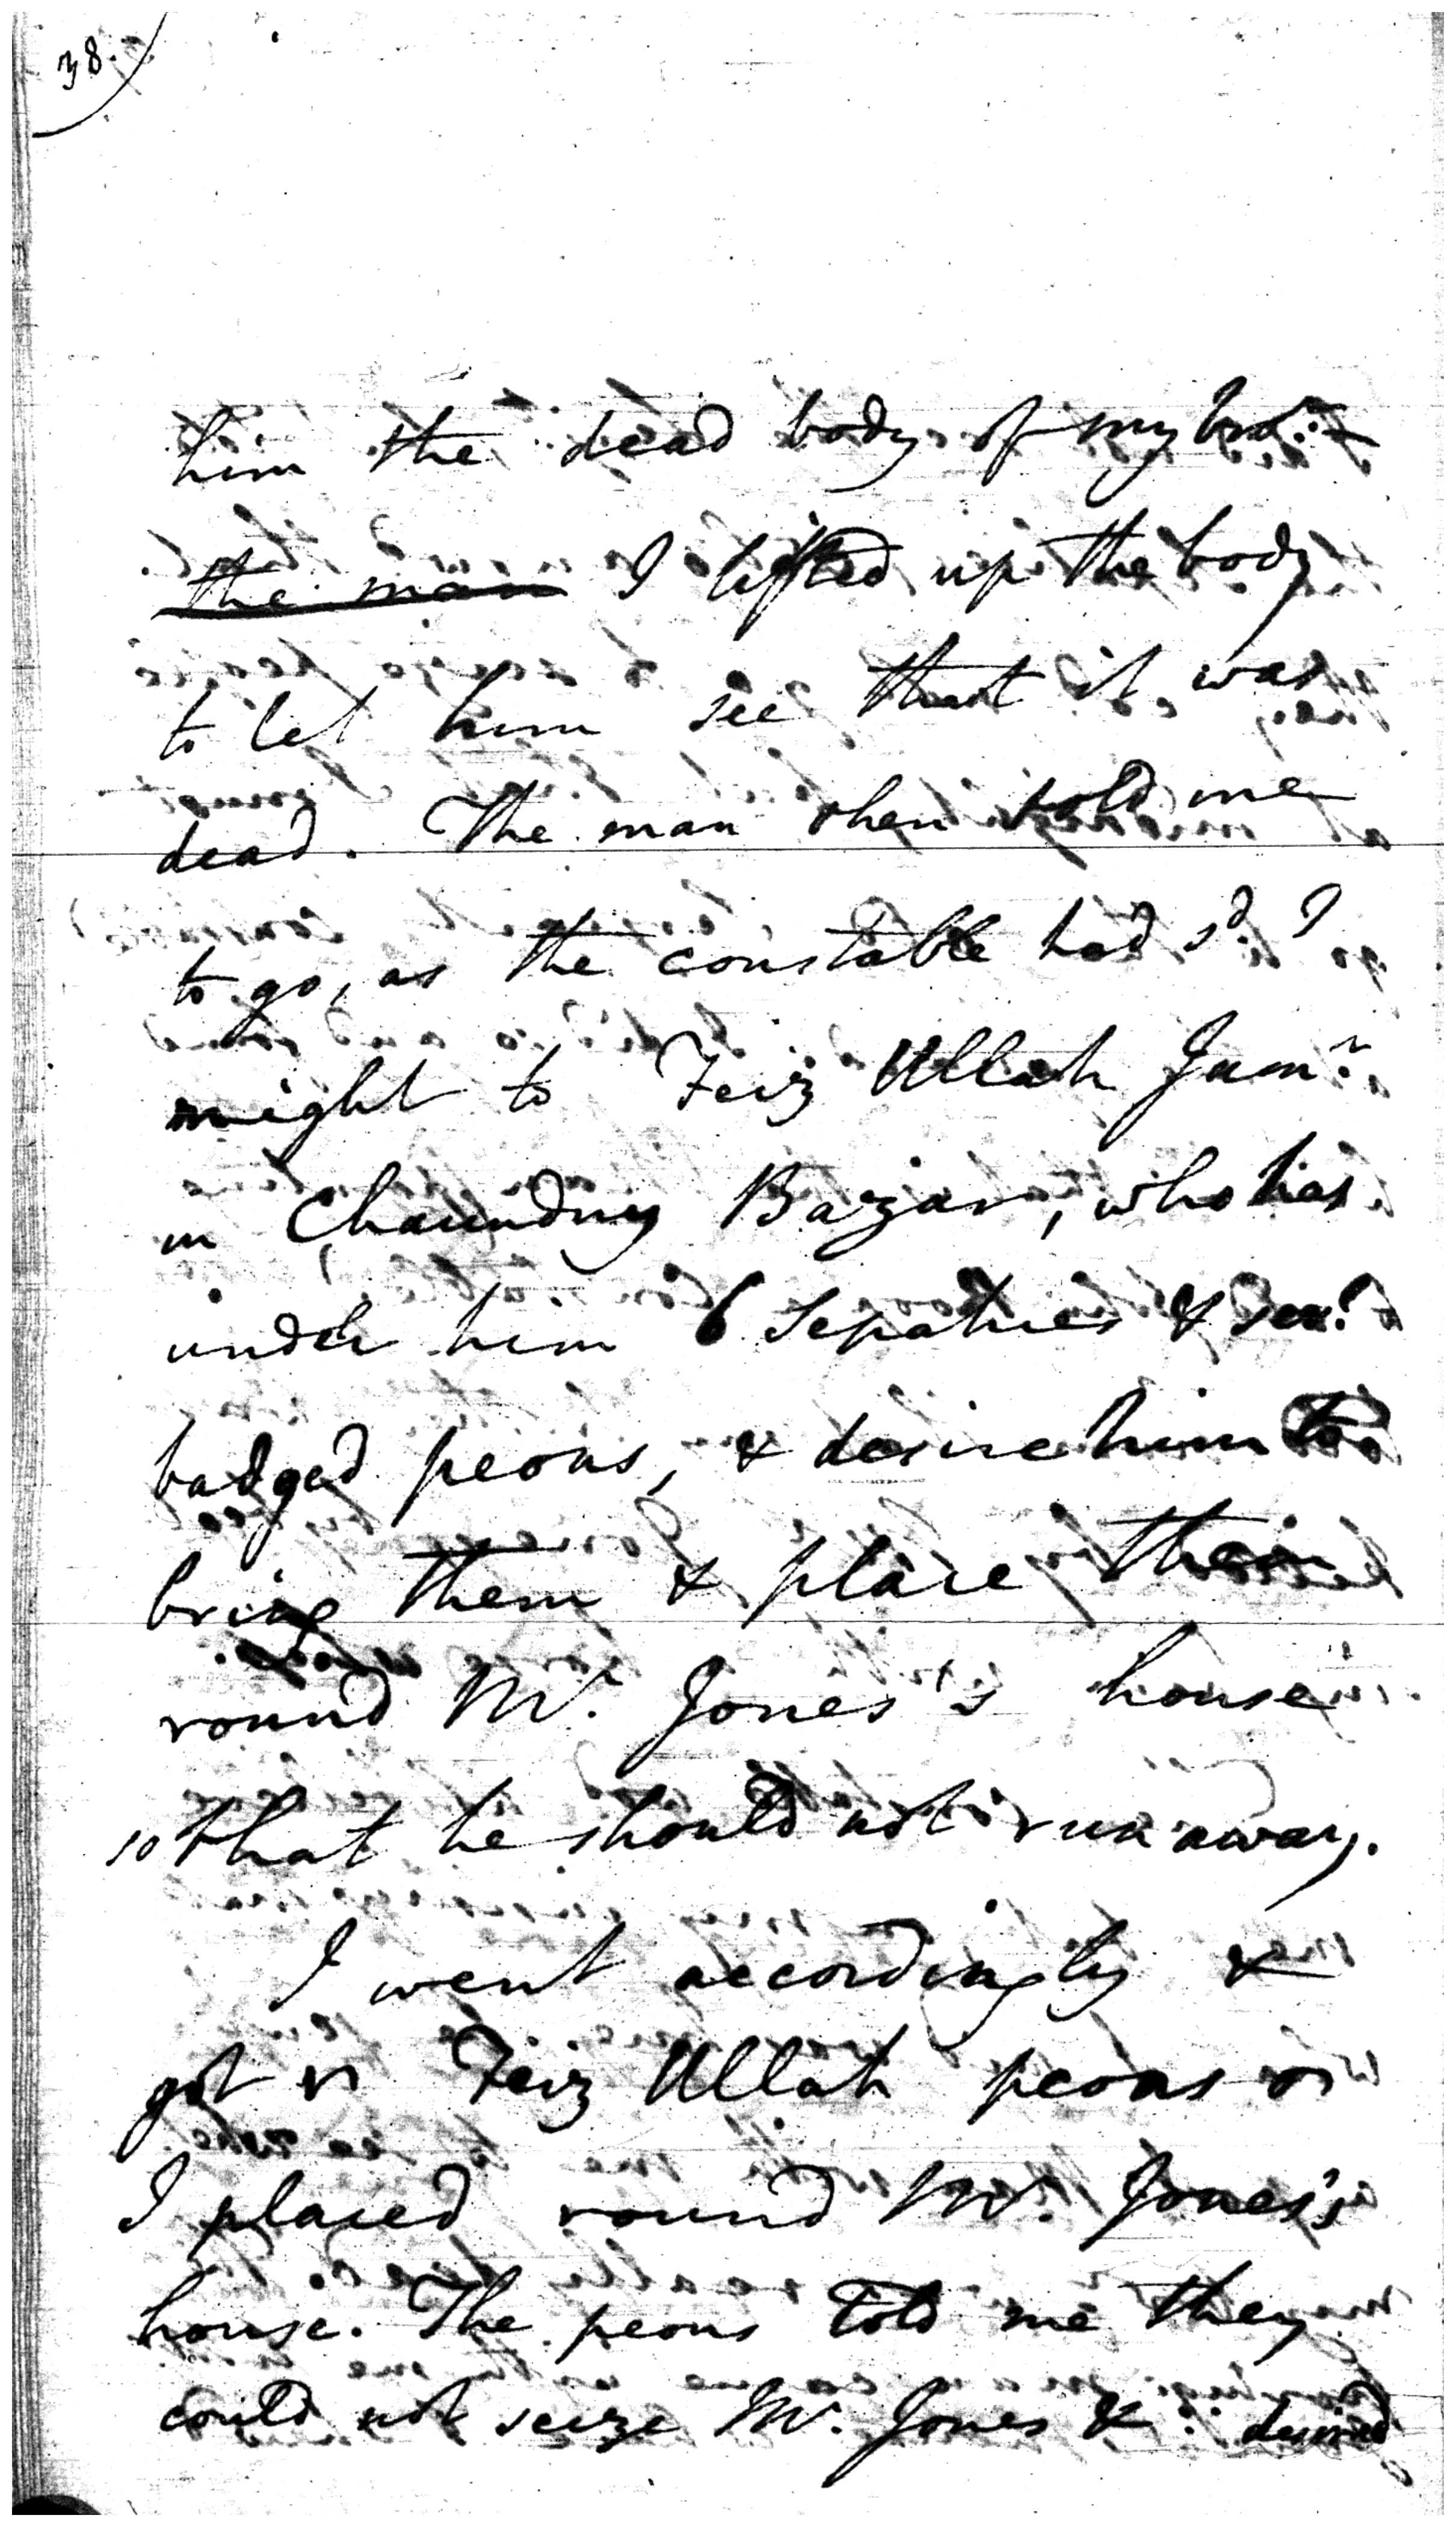 38.
him the dead body of my bror.
the man I lifted up the body
to let him see that it was
dead. The man then told me
to go, as the constable had sd. I
might to Feiz Ullah Jumr.
in Chaundny Bazar, who has
under him 6 Sepahies &
badged peons, & desire him to
bring them & place them
round Mr. Jones's house
so that he should not run away.
I went accordingly &
got Feiz Ullah peons
I placed round Mr. Jones's
house. The peons told me they
could not seize Mr. Jones & desired